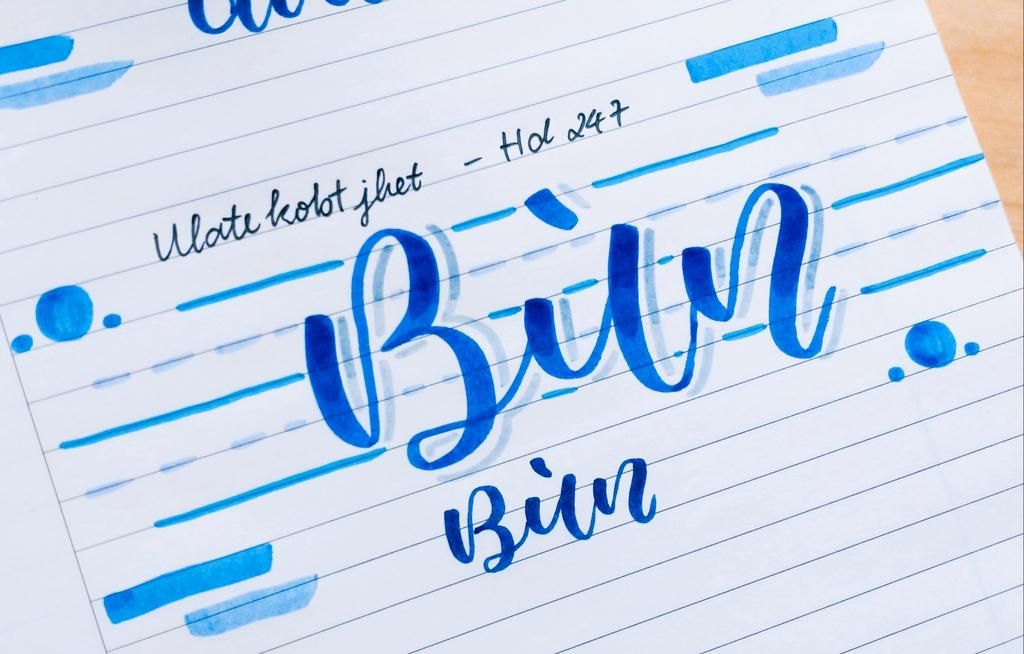 Ulatekobtjhet - Hd 247
Bùn
Bùn